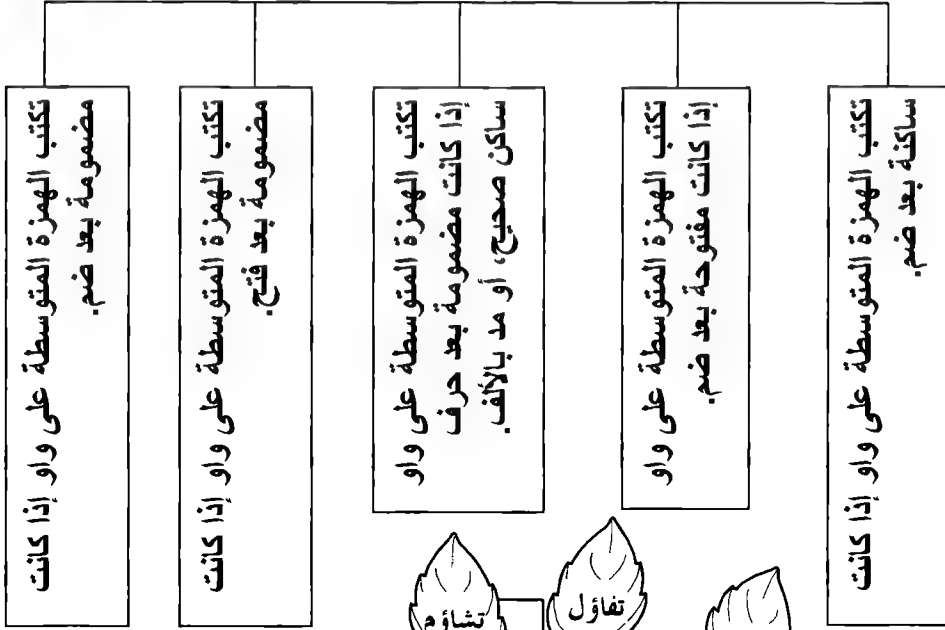 تكتب الهمزة المتوسطة على واو إذا كانت
ساكنة بعد ضم.
تكتب الهمزة المتوسطة على واو
إذا كانت مفتوحة بعد ضم.
تكتب الهمزة المتوسطة على واو
إذا كانت مضمومة بعد حرف
ساكن صحيح، أو مد بالألف.
تكتب الهمزة المتوسطة على واو إذا كانت
مضمومة بعد فتح.
تكتب الهمزة المتوسطة على واو إذا كانت
مضمومة بعد ضم.
تفاؤل
تشاؤم